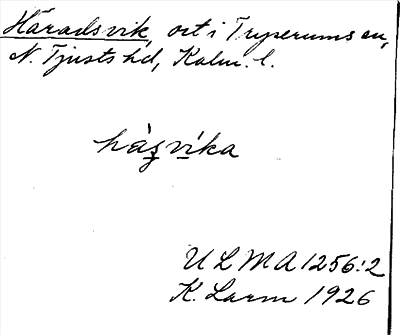 Häradsvik, ort i Tryserums sn,
N. Tjusts hd, Kalm. l.
hàs̱ví̱ka
ULMA 1256:2
K. Larm 1926